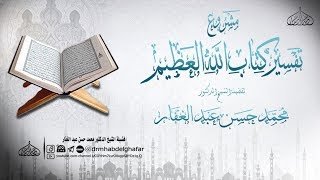 مشروع
تفسير كتاب الله العظيم
لفضيلة الشيخ الدكتور
محمد حسن عبد الغفار
فضيلة الشيخ الدكتور محمد حسن عبد الغفار
@drmhabdelghafar